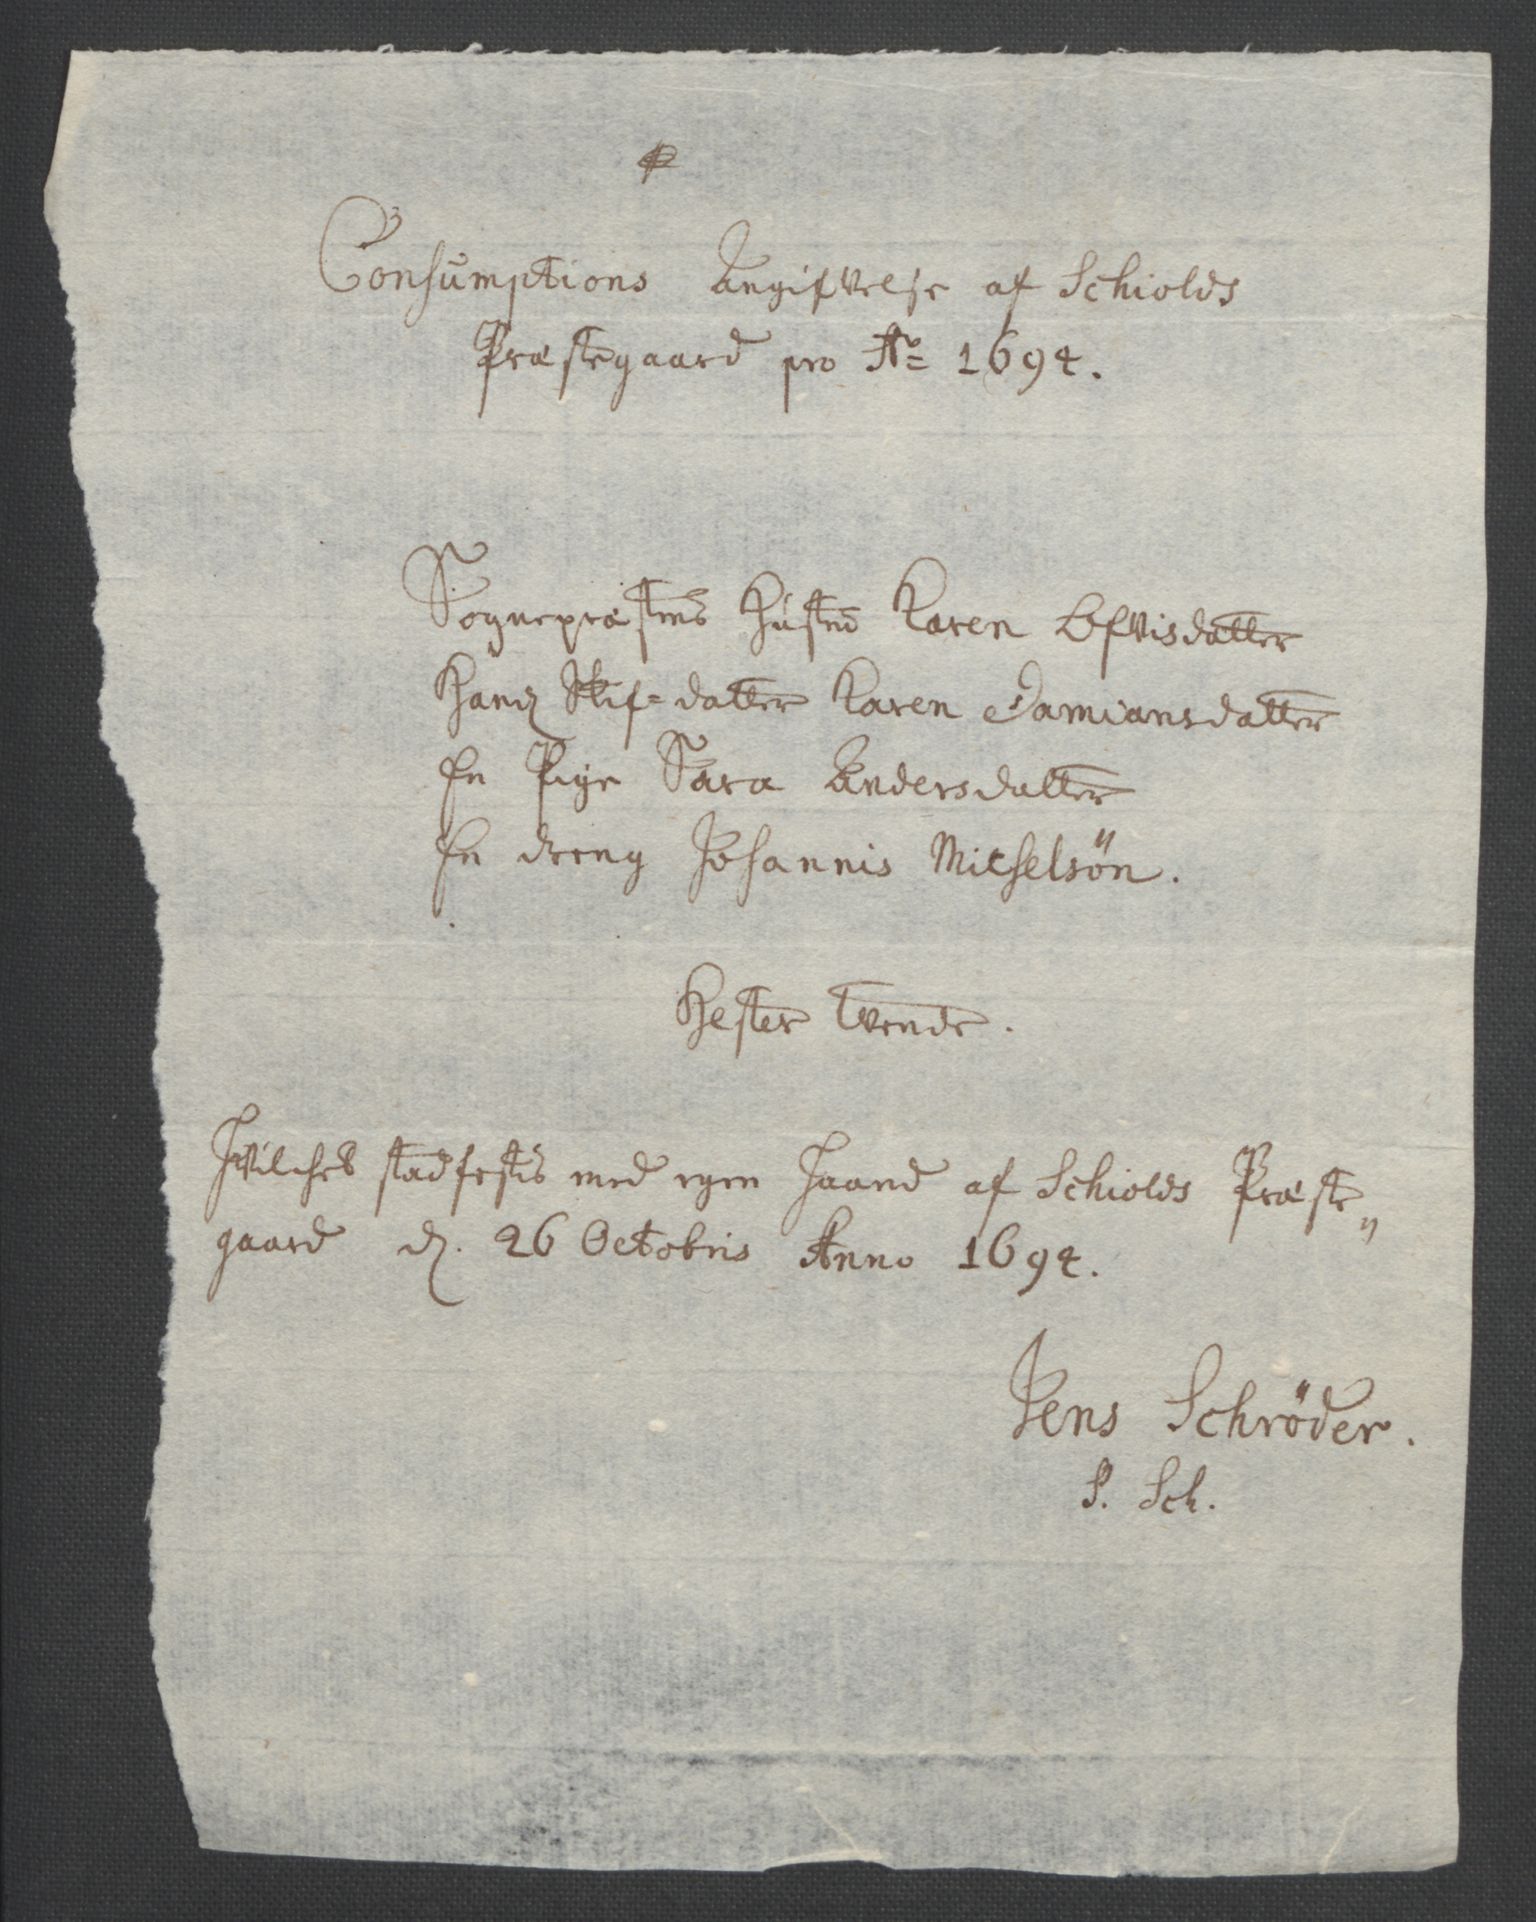 Consumptions Angifvelse af Schiolds
Præstegaard pro Ao 1694.
Sognepræstens Hustro Karen Lefvisdatter
Hans Stif-datter Karen Damiansdatter
En Pige Sara Andersdatter
En dreng Johannis Michelsön.
Hester tvende.
Hvilchet stadfestis med egen Haand af Schiolds Præste„
gaard d. 26 Octobris Anno 1694.
Jens Schröder.
P. Sch.